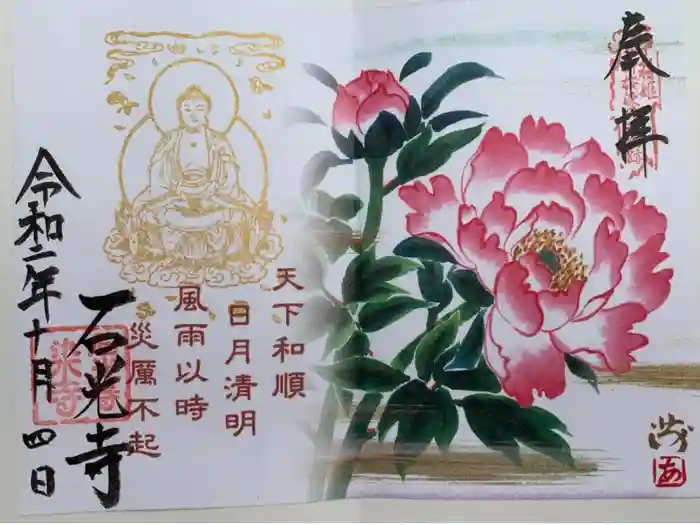 奉拝
天下和順
日月清明
風雨以時
災厲不起
石光寺
令和二年十月四日